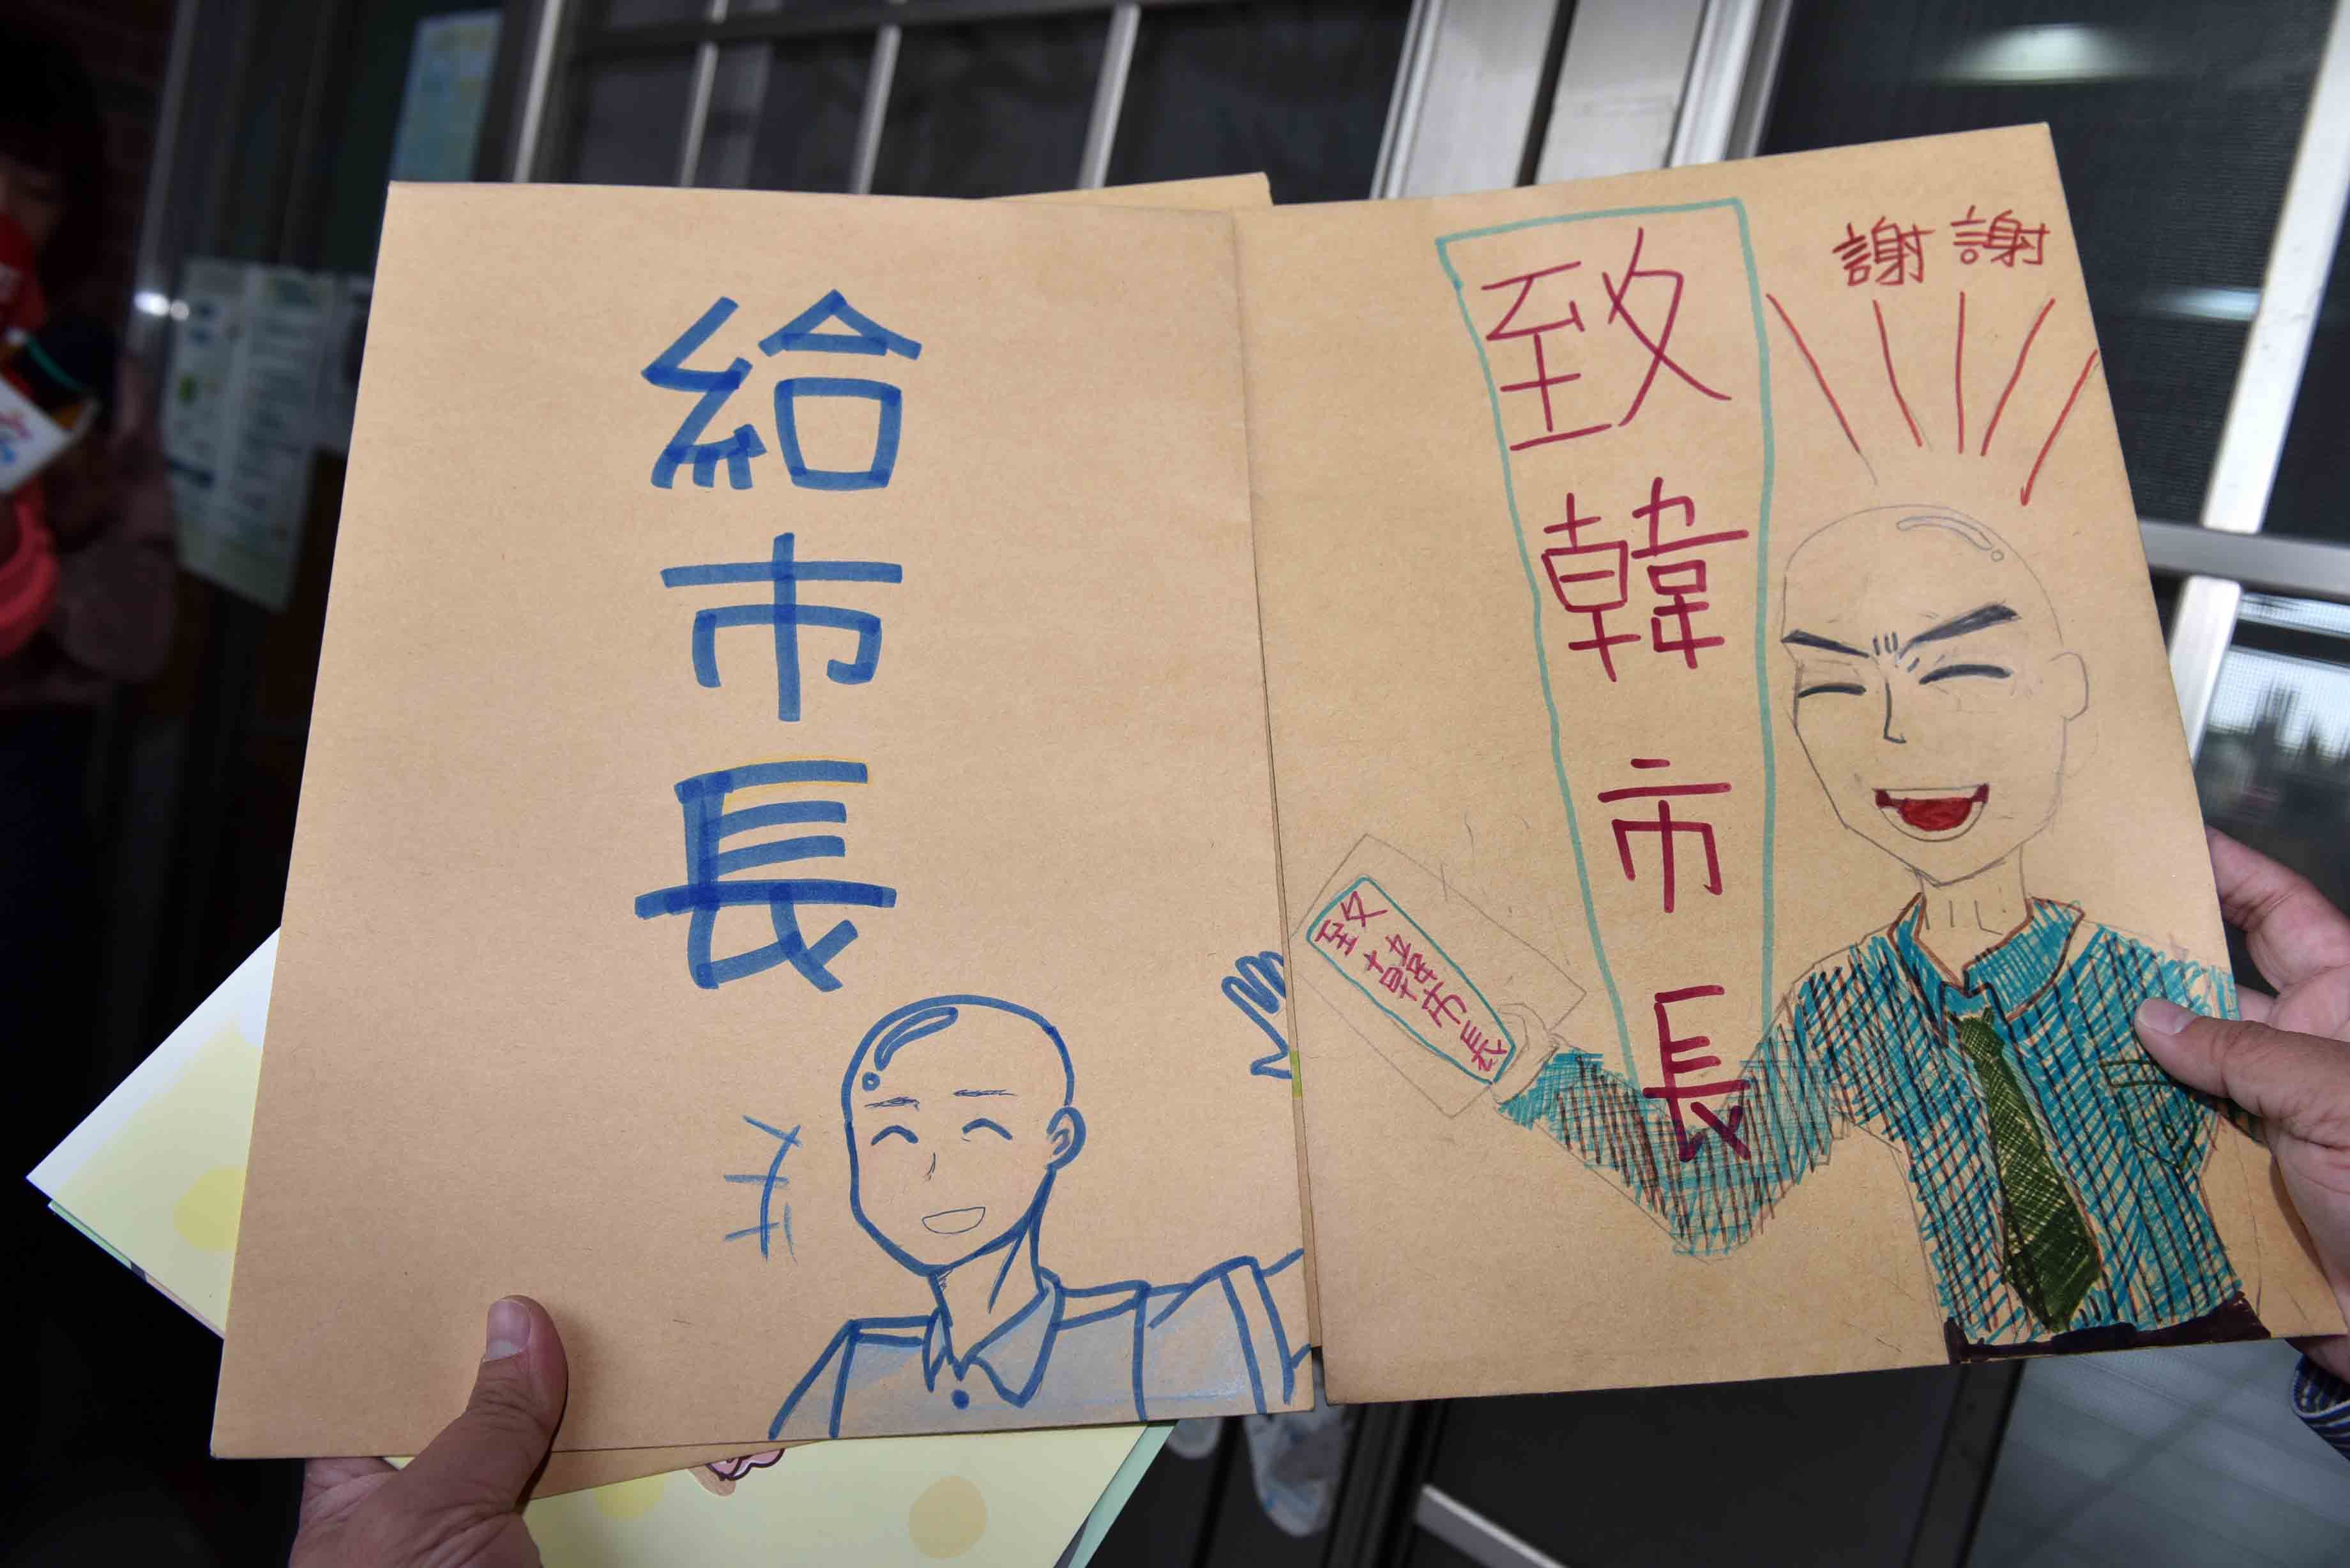 給市長
致韓市長
謝謝
致韓市長